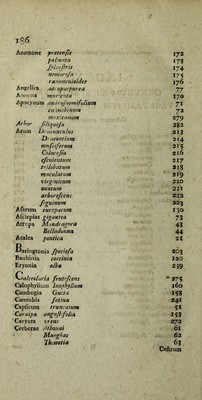 186
Anemone pratensis 172
palmata 173
sylvestris 174
nemorosa 175
ranunculoides 176
Angelica atropurpurea 77
Annona muricata 170
Apocynum androsaemifolium 71
cannabinum 72
mexicanum 279
Arbor siliquosa 282
Arum Dracunculus 213
Dracontium 214
musciferum 215
Colocasia 216
esculentum 217
trilobatum 218
maculatum 219
virginicum 220
ovatum 221
arborescens 222
seguinum 223
Asarum europaeum 130
Asclepias gigantea 73
Atropa Mandragora 43
Belladonna 44
Azalea pontica 21
Barringtonia speciosa 203
Bauhinia coccinea 120
Bryonia alba 239
Calceolaria frutescens 275
Calophyllum Inophyllum 160
Cambogia Gutta 158
Cannabis sativa 241
Capsicum truncatum 51
Caraipa angustifolia 153
Caryota urens 272
Cerberae Ahouai 61
Manghas 62
Thevetia 63
Cestrum